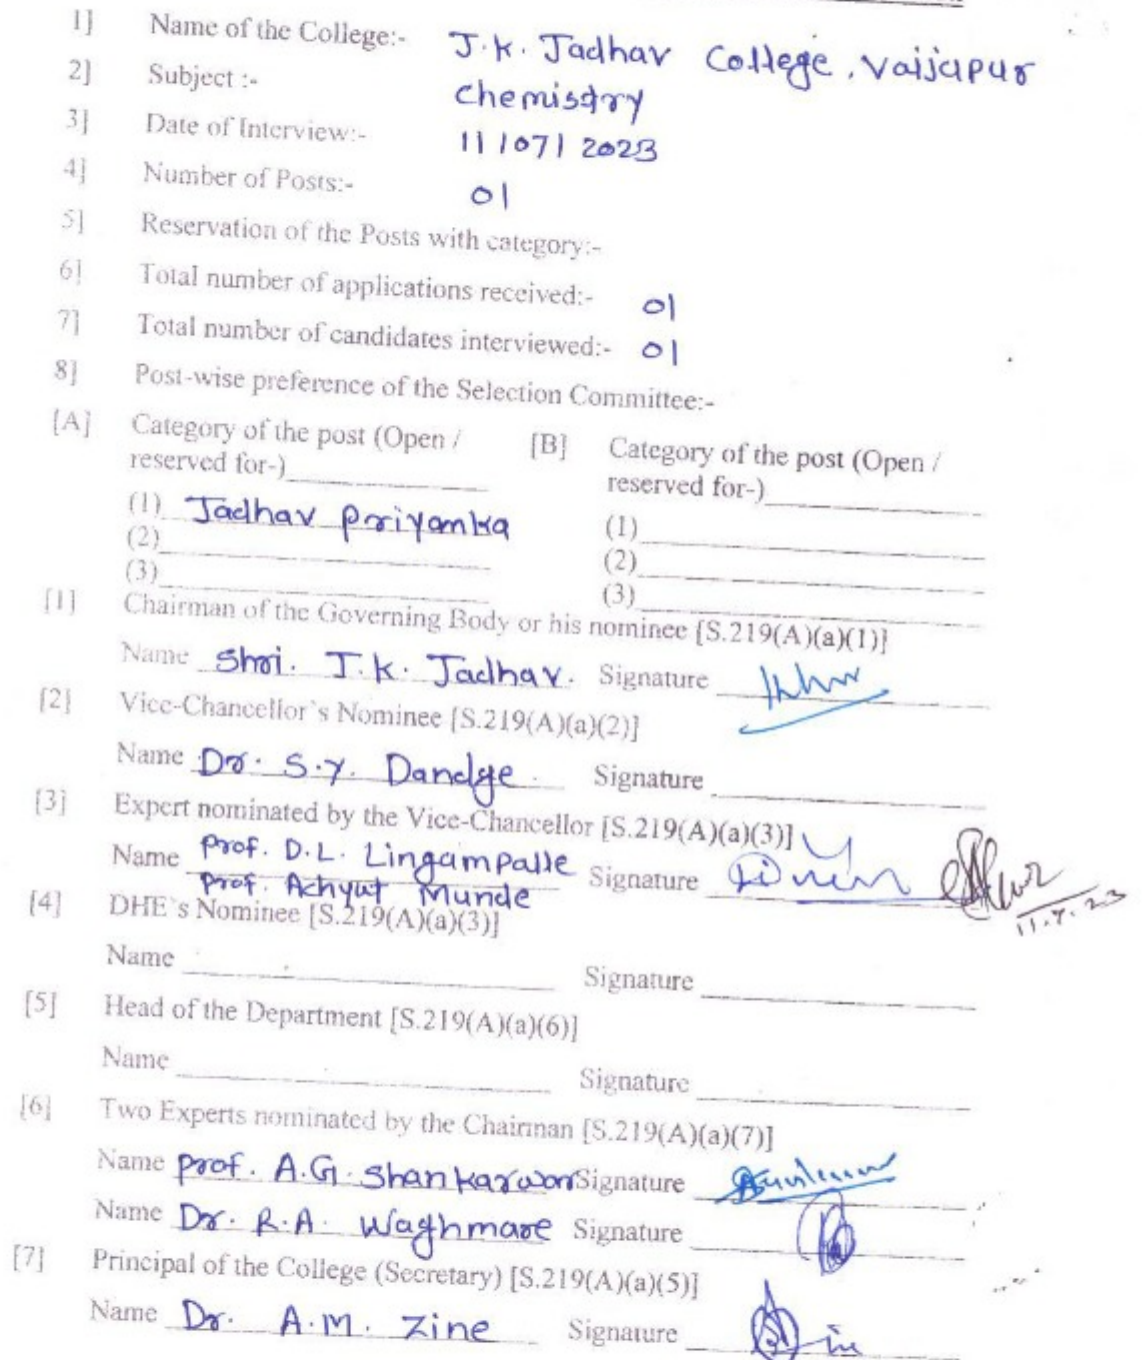 1] Name of the College:- J.K. Jadhav College, Vaijapur
2] Subject :- Chemistry
3] Date of Interview:- 11/07/2023
4] Number of Posts:- 01
5] Reservation of the Posts with category:-
6] Total number of applications received:- 01
7] Total number of candidates interviewed:- 01
8] Post-wise preference of the Selection Committee:-
[A] Category of the post (Open / [B] Category of the post (Open /
reserved for-) reserved for-)
(1) Jadhav Priyanka (1)
(2) (2)
(3) (3)
[1] Chairman of the Governing Body or his nominee [S.219(A)(a)(1)]
Name Shri. J.K. Jadhav. Signature
[2] Vice-Chancellor's Nominee [S.219(A)(a)(2)]
Name Dr. S.Y. Dandge Signature
[3] Expert nominated by the Vice-Chancellor [S.219(A)(a)(3)]
Name Prof. D.L. Lingampalle Signature
Prof. Achyut Munde
11.7.23
[4] DHE's Nominee [S.219(A)(a)(3)]
Name Signature
[5] Head of the Department [S.219(A)(a)(6)]
Name Signature
[6] Two Experts nominated by the Chairman [S.219(A)(a)(7)]
Name Prof. A.G. Shankarwar Signature
Name Dr. R.A. Waghmare Signature
[7] Principal of the College (Secretary) [S.219(A)(a)(5)]
Name Dr. A.M. Zine Signature